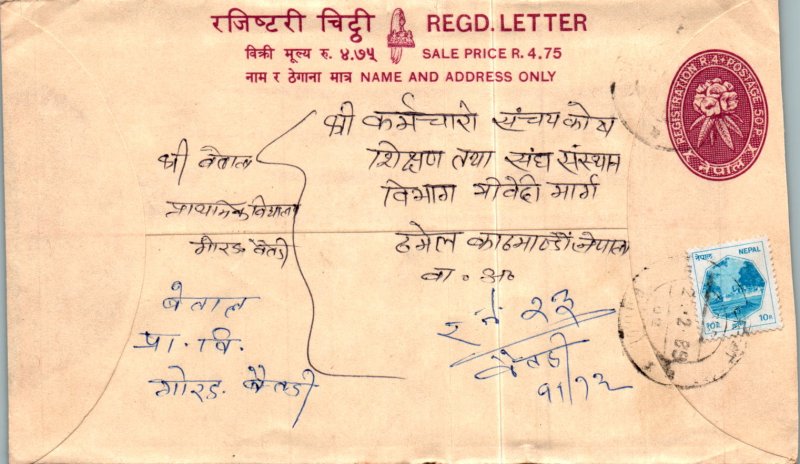 रजिष्टरी चिट्ठी REGD. LETTER
विक्री मूल्य रु. ४.७५ SALE PRICE R. 4.75
नाम र ठेगाना मात्र NAME AND ADDRESS ONLY
REGISTRATION R 4 + POSTAGE 50 P.
नेपाल
श्री कर्मचारी संचयकोष
शिक्षण तथा संघ संस्थान
विभाग त्रीवेदी मार्ग
ठमेल काठमाण्डौं नेपाल
वा. अ.
श्री वेताल
प्राथमिक विद्यालय
गोरड बैतडी
बेताल
प्रा. वि.
गोरड बैतडी
र नं २३
बैतडी
११/१२
नेपाल NEPAL
१०रु 10R